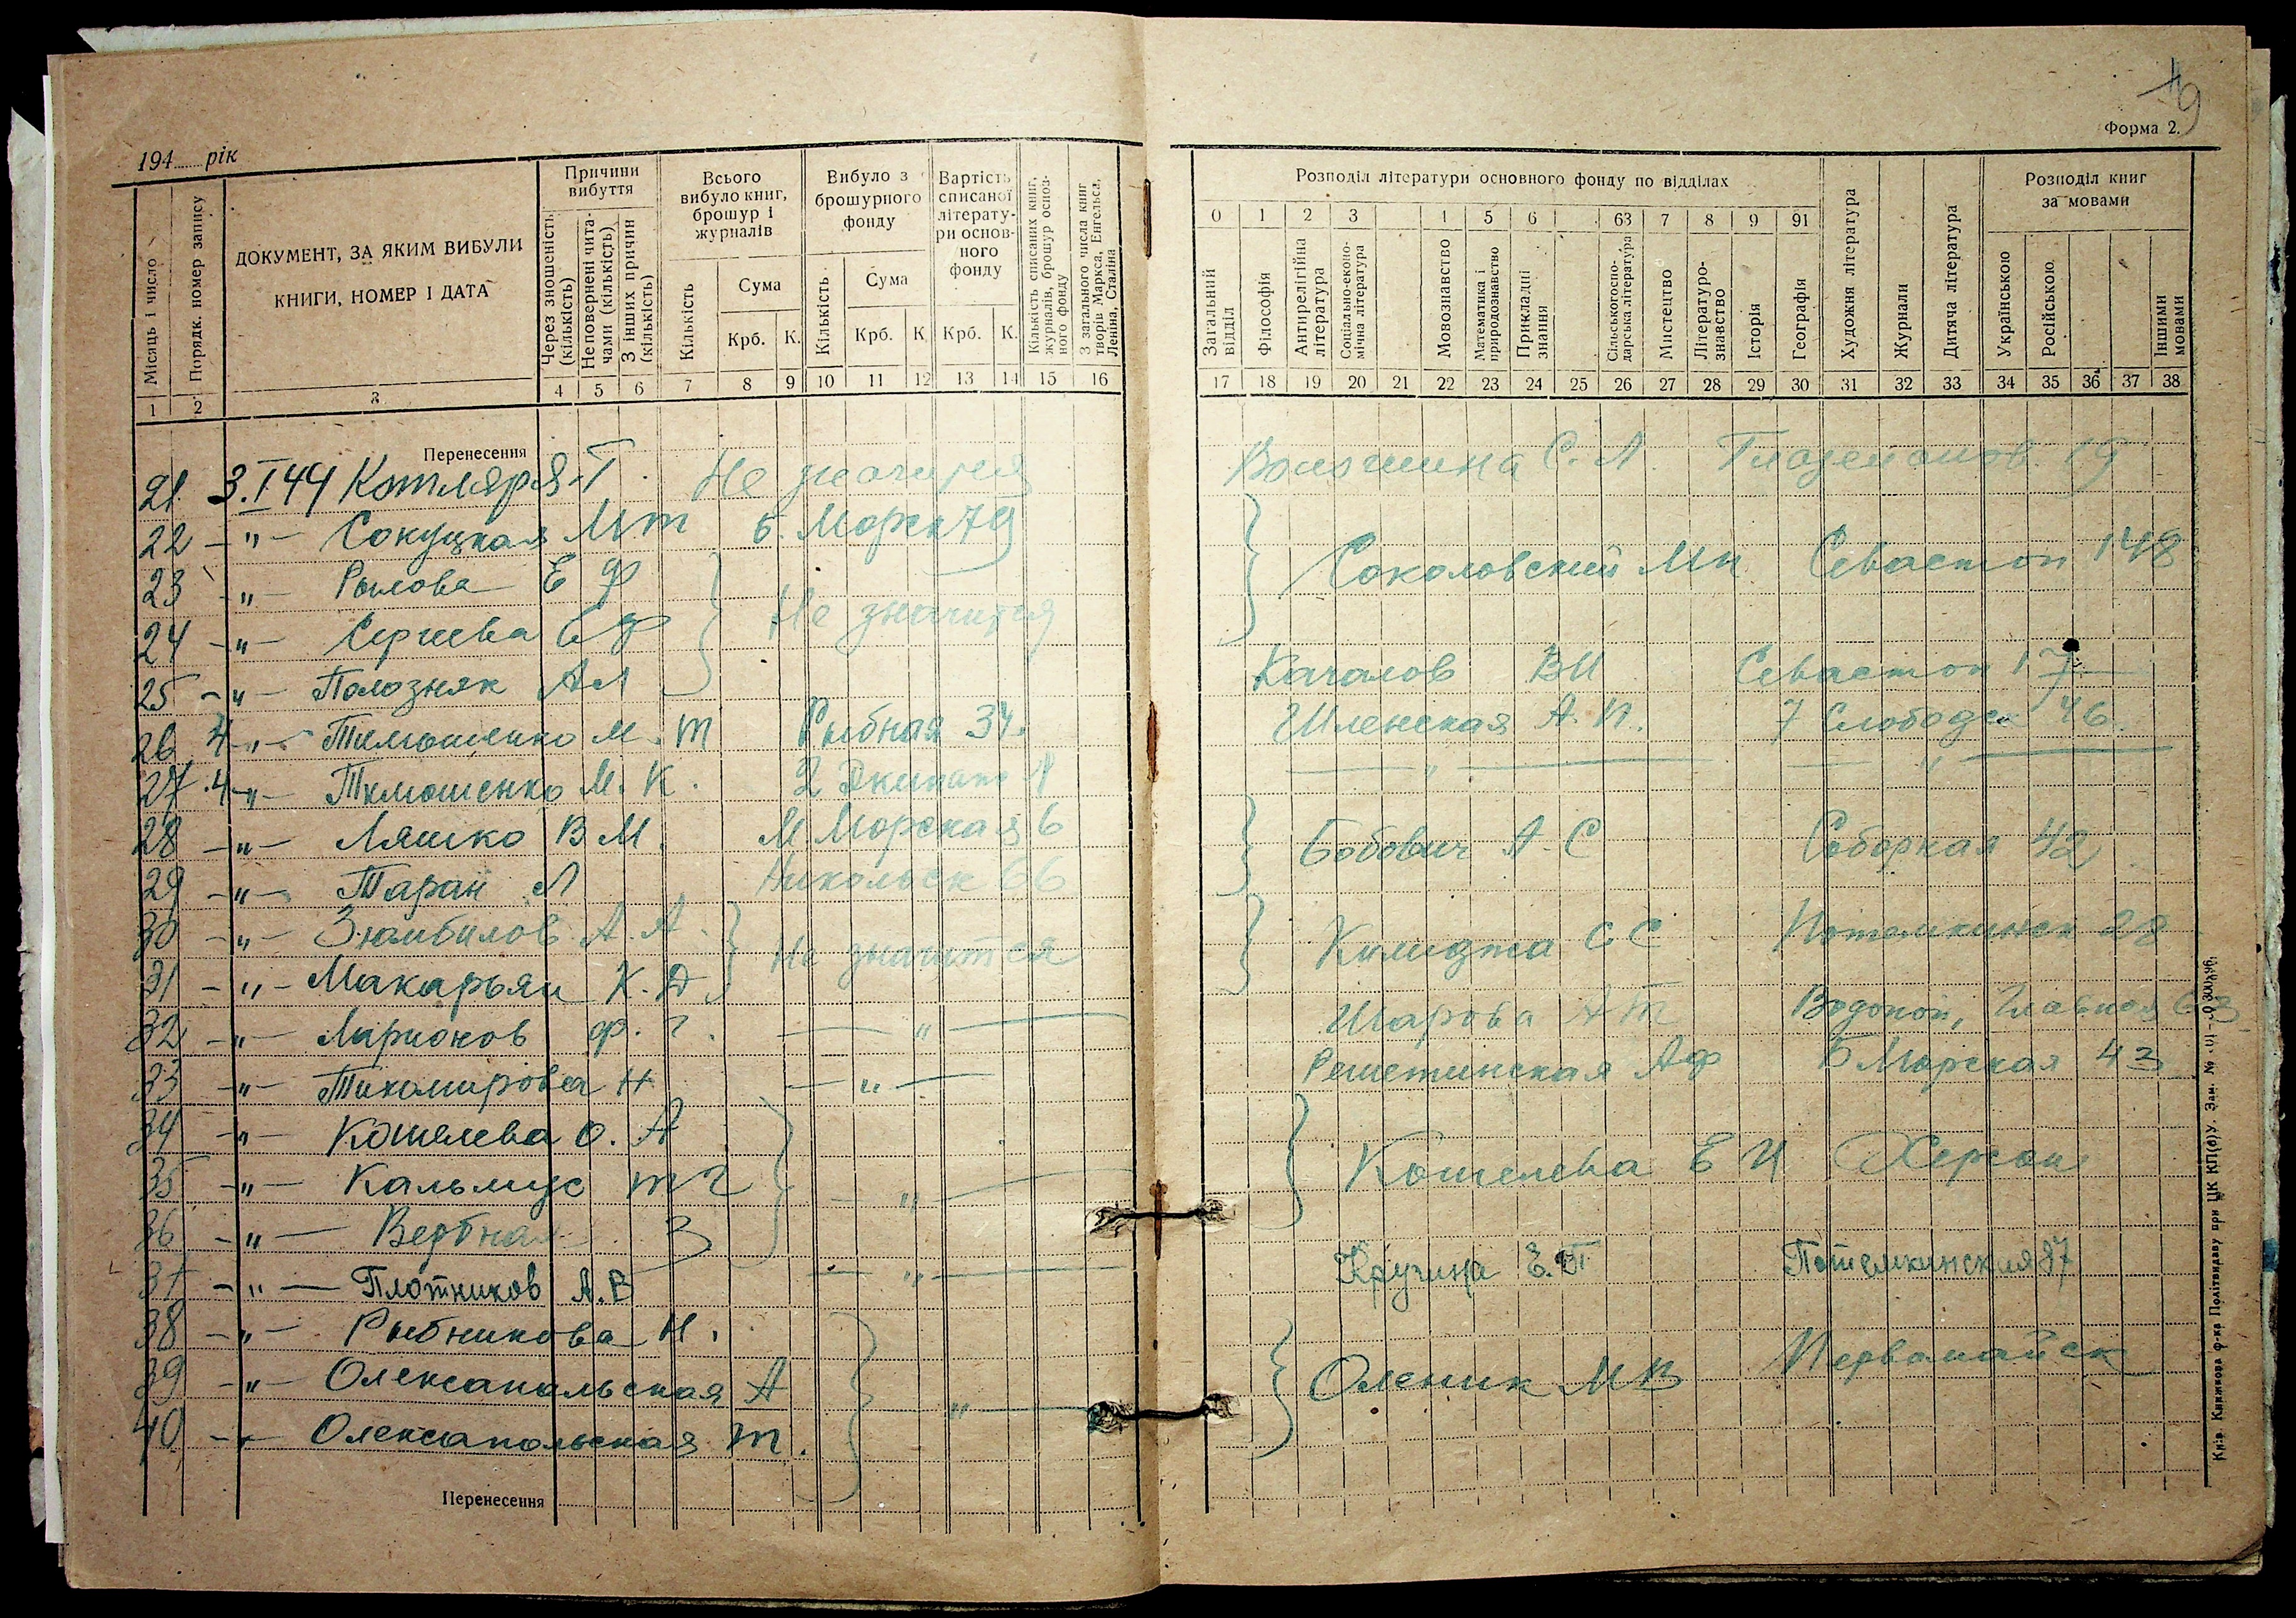 19
Форма 2.
194 рік
Місяць і число
Порядк. номер запису
ДОКУМЕНТ, ЗА ЯКИМ ВИБУЛИ
КНИГИ, НОМЕР І ДАТА
Причини
вибуття
Через зношеність
(кількість)
Неповернені чита-
чами (кількість)
З інших причин
(кількість)
Всього
вибуло книг,
брошур і
журналів
Кількість
Сума
Крб. К.
Вибуло з
брошурного
фонду
Кількість
Сума
Крб. К
Вартість
списаної
літерату-
ри основ-
ного
фонду
Крб. К.
Кількість списаних книг,
журналів, брошур основ-
ного фонду
З загального числа книг
творів Маркса, Енгельса,
Леніна, Сталіна
1 2 3 4 5 6 7 8 9 10 11 12 13 14 15 16
Розподіл літератури основного фонду по відділах
0 1 2 3 4 5 6 63 7 8 9 91
Загальний
відділ
Філософія
Антирелігійна
література
Соціально-еконо-
мічна література
Мовознавство
Математика і
природознавство
Прикладні
знання
Сільськогоспо-
дарська література
Мистецтво
Літературо-
знавство
Історія
Географія
Художня література
Журнали
Дитяча література
Розподіл книг
за мовами
Українською
Російською
Іншими
мовами
17 18 19 20 21 22 23 24 25 26 27 28 29 30 31 32 33 34 35 36 37 38
Перенесення
21. 3.I 44 Котляр Я.Т. Не значится С. А. 19
22 -"- Сокуцкая М т Б. Морск 79
23 -"- Рылова Е Ф Соколовский Мн Севастоп 148
24 -"- Сергиева Е Ф Не значится
25 -"- Полозняк А Л Качалов ВИ Севастоп 17
26 4 -"- Тимошенко М. Т Рыбная 34. Шленская А. П. 7 Слободск 46.
27 .4 -"- Тимошенко М. К. 2 -"- -"-
28 -"- Ляшко В М. М Морская 6 Бобович А. С Соборная 42
29 -"- Таран Л Никольск 66
30 -"- Зюмбилов А. А. Не значится С С Потемкинск 28
31 -"- Макарьян К. Д
32 -"- Ларионов Ф. Г. -"- Шарова А Т Водопой, Главная 63
33 -"- Тихомирова Н -"- Решетинская А Ф Б Морская 43
34 -"- Кошелева О. А
35 -"- Кальмус т г -"- Кошелева Е И Херсон
36 -"- Вербная З
37 -"- Плотников А. В -"- Кручина Потемкинская 87
38 -"- Рыбникова Н.
39 -"- Олексапольская А -"- Оленик М В Первомайск
40 -"- Олексапольская Т.
Перенесення
Київ Книжкова ф-ка Політвидаву при ЦК КП(б)У. Зам. №